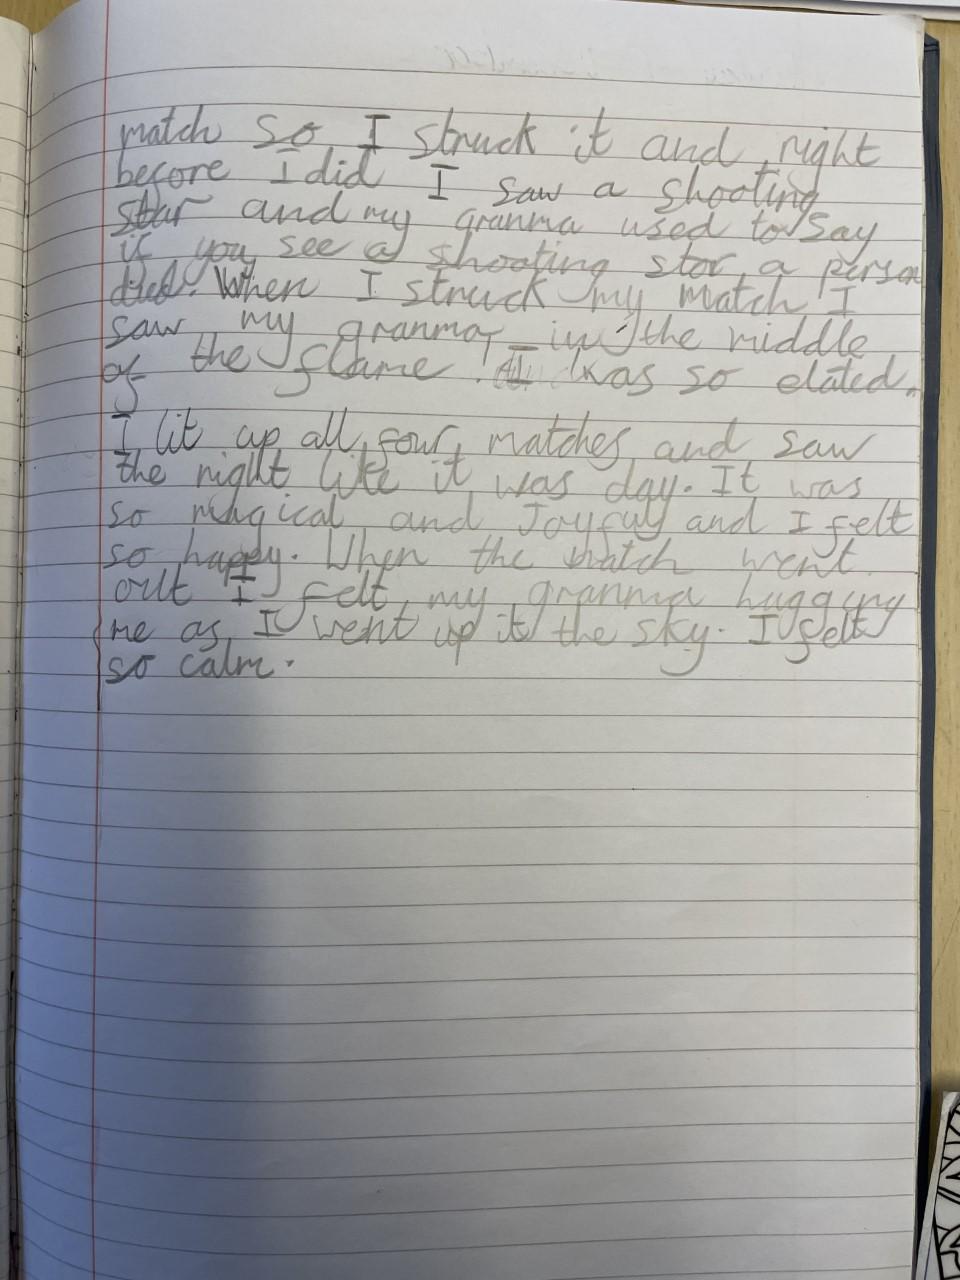 match so I struck it and right
before I did I saw a shooting
star and my granma used to say
if you see a shooting star a person
died. When I struck my match I
saw my granma in the middle
of the flame. I was so elated.
I lit up all four matches and saw
the night like it was day. It was
so magical and Joyful and I felt
so happy. When the match went
out I felt my granma hugging
me as I went up it the sky. I felt
so calm.